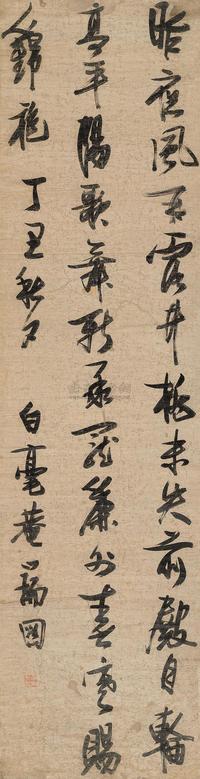 昨夜風開露井桃未央前殿月輪
高平陽歌舞新承寵簾外春寒賜
錦袍 丁丑秋夕 白毫菴瑞圖